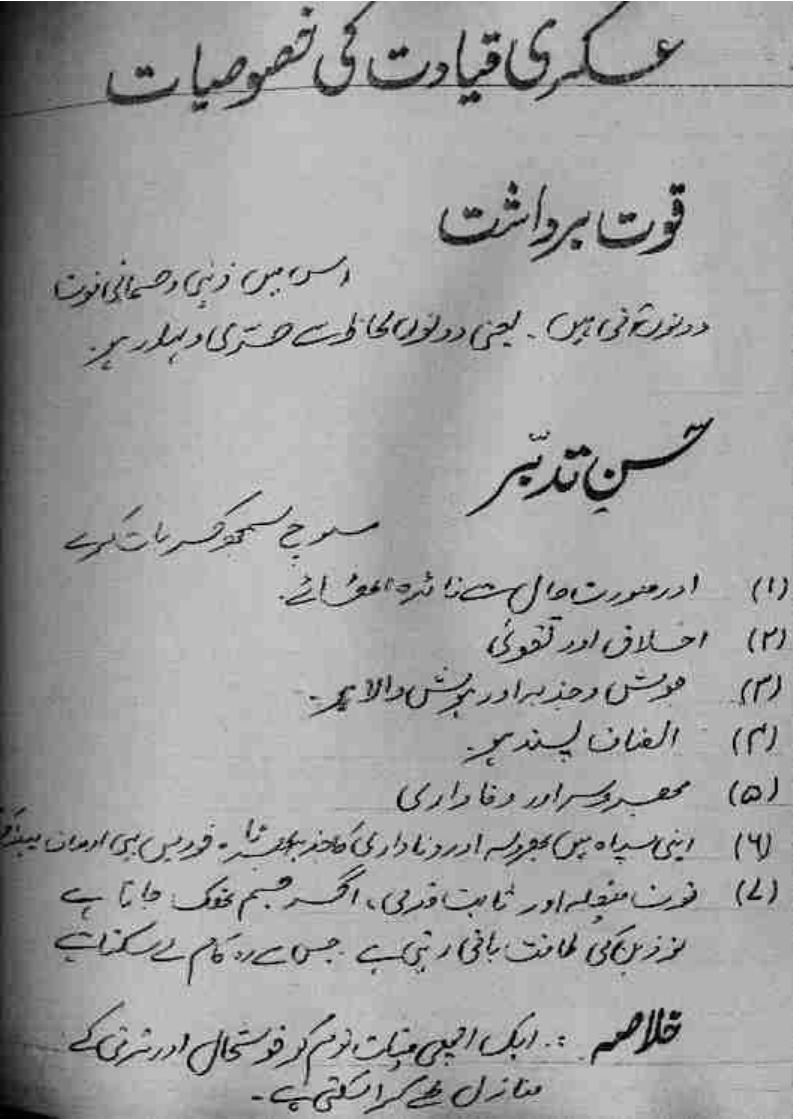 عسکری قیادت کی خصوصیات
قوت برداشت
اس میں ذہنی و جسمانی قوت
دونوں آتی ہیں۔ یعنی دونوں لحاظ سے جری و بہادر ہو۔
حسنِ تدبّر
سوچ سمجھ کر بات کرے
(۱) اور صورت حال سے فائدہ اٹھائے۔
(۲) اخلاق اور تقویٰ
(۳) ہوش و جذبہ اور جوش والا ہو۔
(۴) انصاف پسند ہو۔
(۵) بھروسہ اور وفاداری
(۶) اپنی سپاہ میں بھروسہ اور وفاداری کا جذبہ
(۷) قوت فیصلہ اور ثابت قدمی، اگر جسم تھک جاتا ہے
تو ذہن کی طاقت باقی رہتی ہے۔ جس سے وہ کام لے سکتا ہے
خلاصہ :. ایک اچھی قیادت قوم کو خوشحال اور ترقی کے
منازل طے کرا سکتی ہے۔